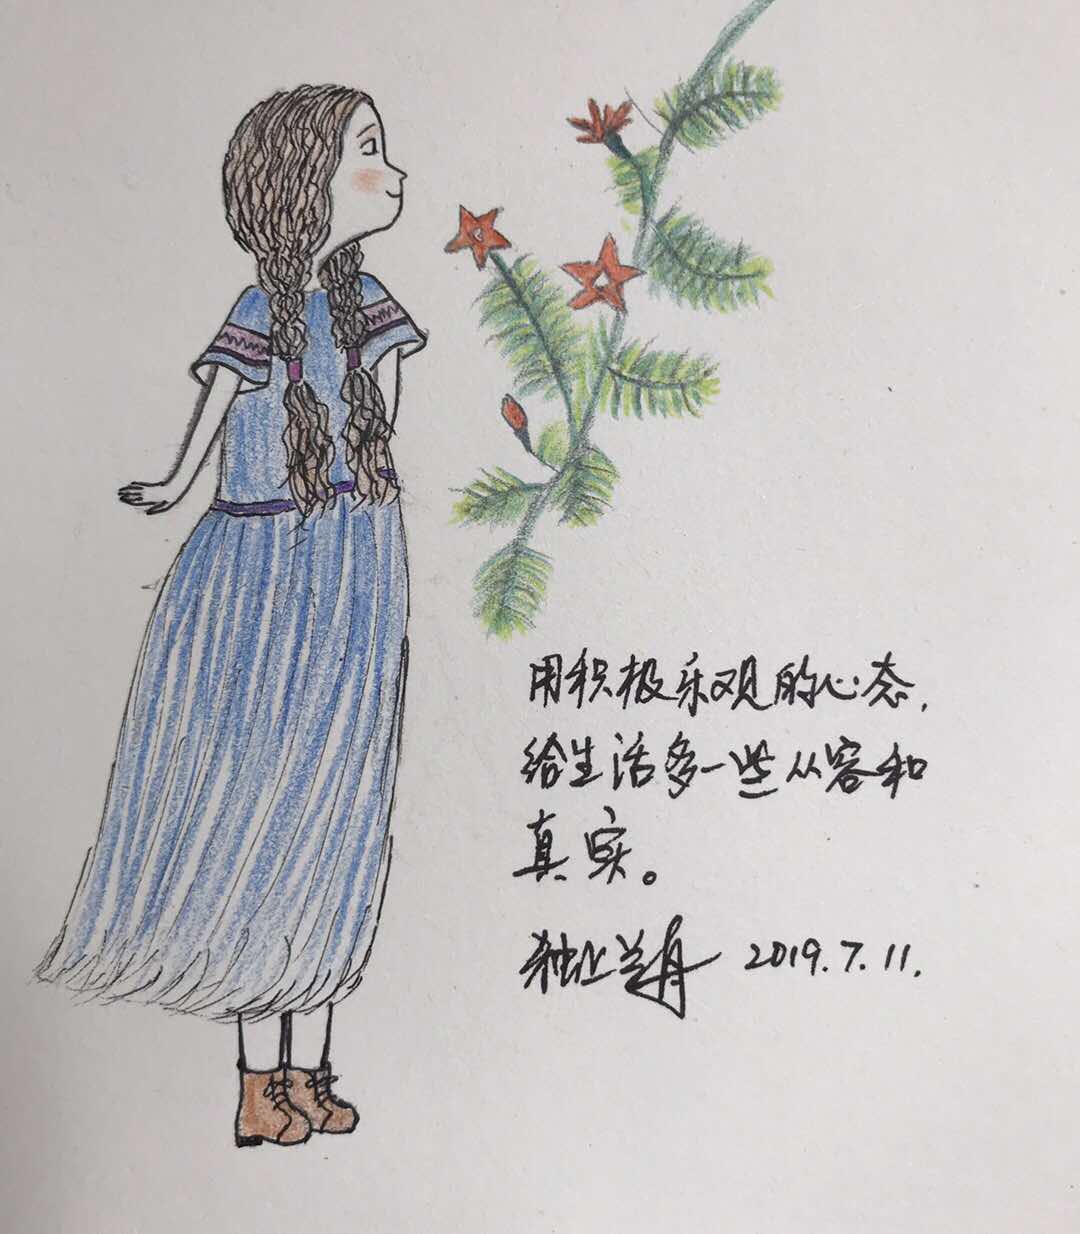 用积极乐观的心态,
给生活多一些从容和
真实。
2019.7.11.